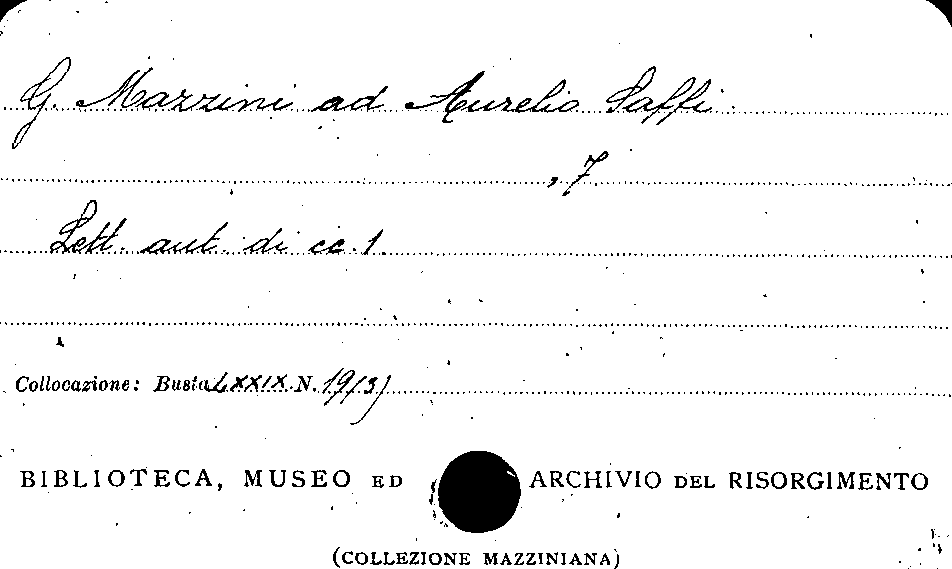 G. Mazzini ad Aurelio Saffi.
, 7
Lett. aut. di cc. 1.
Collocazione: Busta LXXIX N. 19(3)
BIBLIOTECA, MUSEO ED ARCHIVIO DEL RISORGIMENTO
(COLLEZIONE MAZZINIANA)